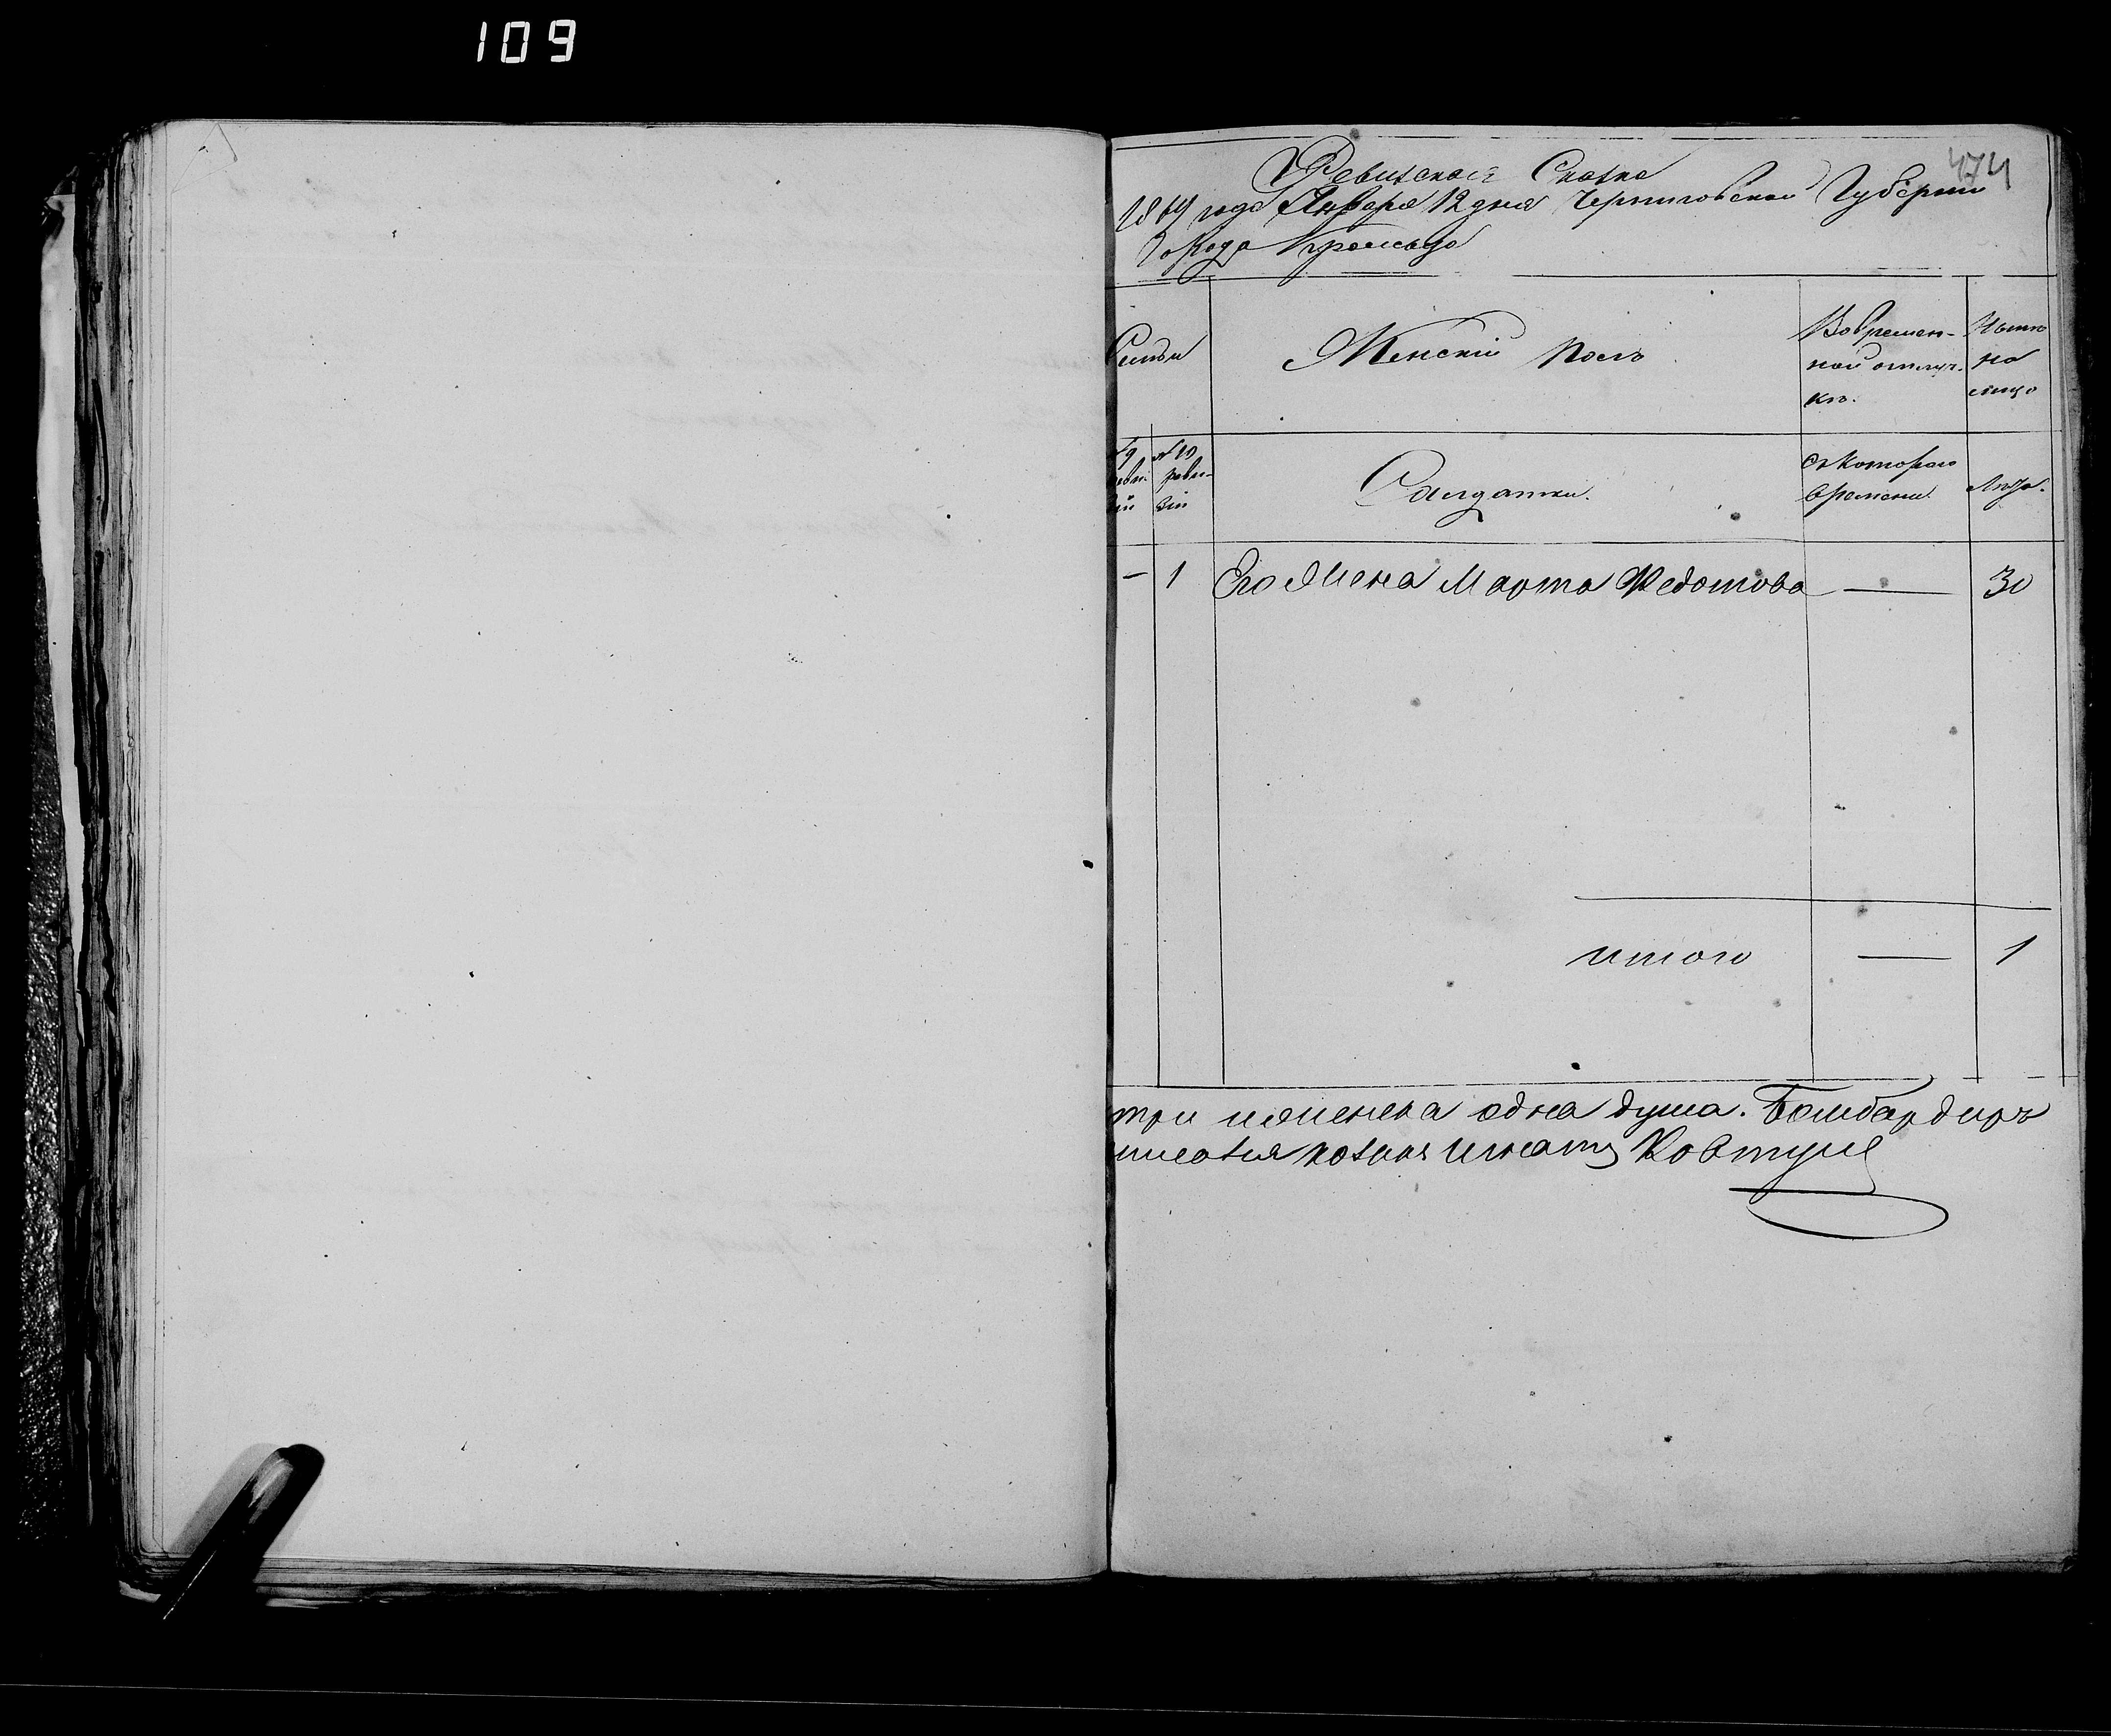 109
474
Ревизская Сказка
1869 года Января 12 дня Черниговской Губерніи
Города Кролевца
Семьи
Женскій полъ
Вовремен-
ной отлуч-
къ.
Налицо
№ 9 реви-
зіи
№ 10 реви-
зіи
Салдатки.
Съ котораго
времени.
Лѣта.
— 1 Его Жена Марта Федотова — 30
итого — 1
женска одна душа. Бомбардиръ
Игнатъ Ковтунъ